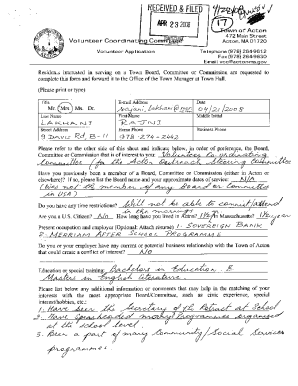 RECEIVED & FILED
APR 23 2008
Town of Acton
472 Main Street
Acton, MA 01720
Volunteer Coordinating Committee
Volunteer Application
Telephone (978) 264-9612
Fax (978) 264-9630
Residents interested in serving on a Town Board, Committee or Commission are requested to
complete this form and forward it to the Office of the Town Manager at Town Hall.
(Please print or type)
Title: E-mail Address Date
Mr. Mrs. Ms. Dr. 04/21/2008
Last Name First Name Middle Initial
LAKHANI RAJNI
Street Address Home Phone Business Phone
9 Davis Rd, B-11 978-274-2242
Please refer to the other side of this sheet and indicate below, in order of preference, the Board,
Committee or Commission that is of interest to you: Volunteer Co ordinating
Committee, for the Acton Outreach Steering Committee
Have you previously been a member of a Board, Committee or Commission (either in Acton or
elsewhere)? If so, please list the Board name and your approximate dates of service: N/A
(Was not the member of any Board or Committee
in USA)
Do you have any time restrictions? Will not be able to commit/attend
in the mornings
Are you a U.S. Citizen? No How long have you lived in Acton? 1½ yr in Massachusetts?
Present occupation and employer (Optional: Attach résumé) 1. SOVEREIGN BANK
2. MERRIAM AFTER SCHOOL PROGRAMME
Do you or your employer have any current or potential business relationship with the Town of Acton
that could create a conflict of interest? NO
Education or special training: Bachelors in Education &
Masters in English Literature
Please list below any additional information or comments that may help in the matching of your
interest with the most appropriate Board/Committee, such as civic experience, special
interest/hobbies, etc.:
1. Have been the Secretary of the Rotract at School
2. Have Spearheaded many Programmes organised
at the school level.
3. Been a part of many Community/Social Services
programmes